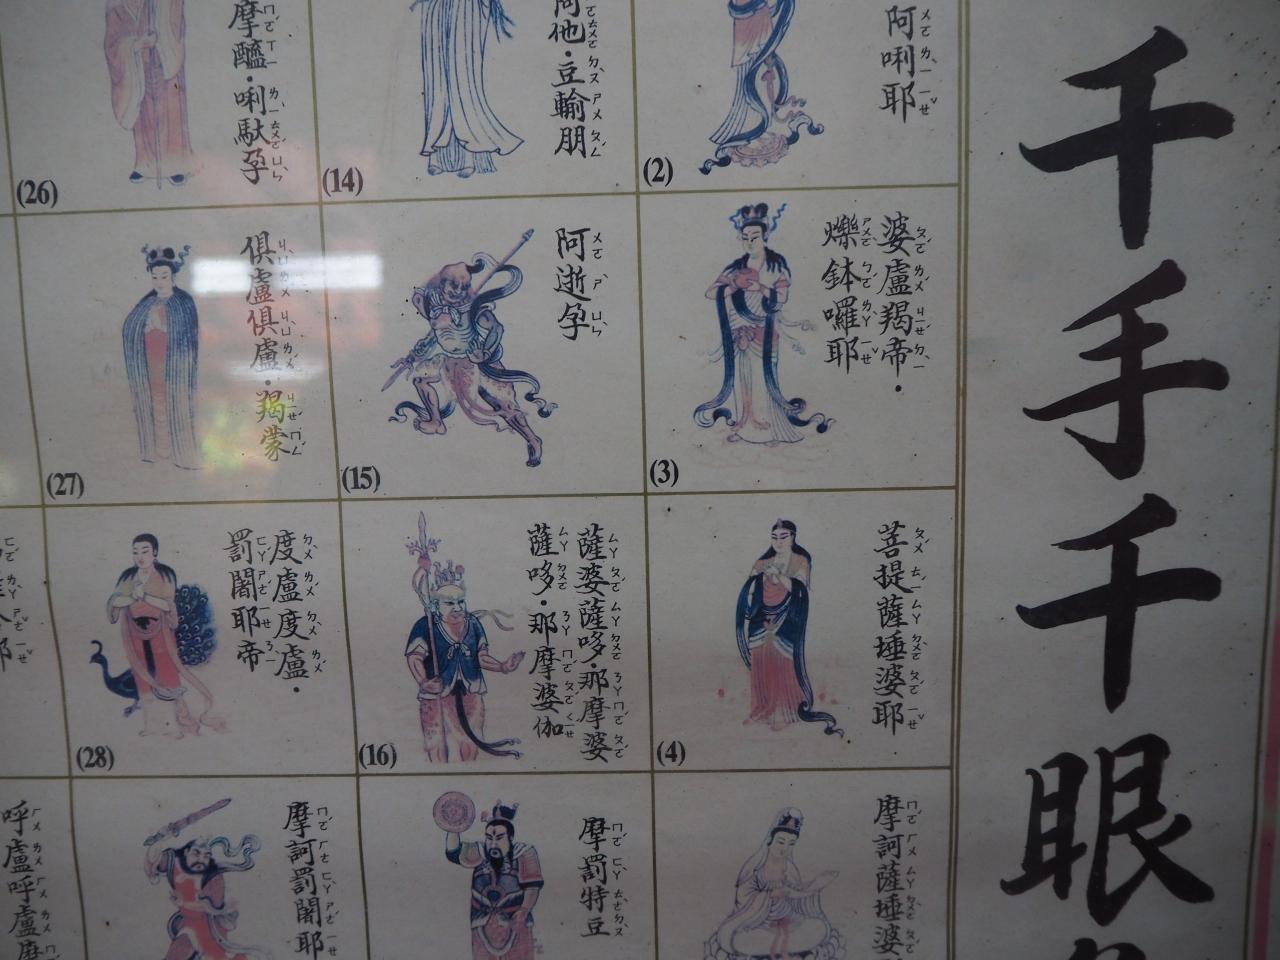 千手千眼
阿唎耶
(2)
婆盧羯帝．
爍鉢囉耶
(3)
菩提薩埵婆耶
(4)
摩訶薩埵婆
他．豆輸朋
(14)
阿逝孕
(15)
薩婆薩哆．那摩婆
薩哆．那摩婆伽
(16)
摩罰特豆
摩醯．唎馱孕
(26)
俱盧俱盧．羯蒙
(27)
度盧度盧．
罰闍耶帝
(28)
摩訶罰闍耶
呼盧呼盧摩